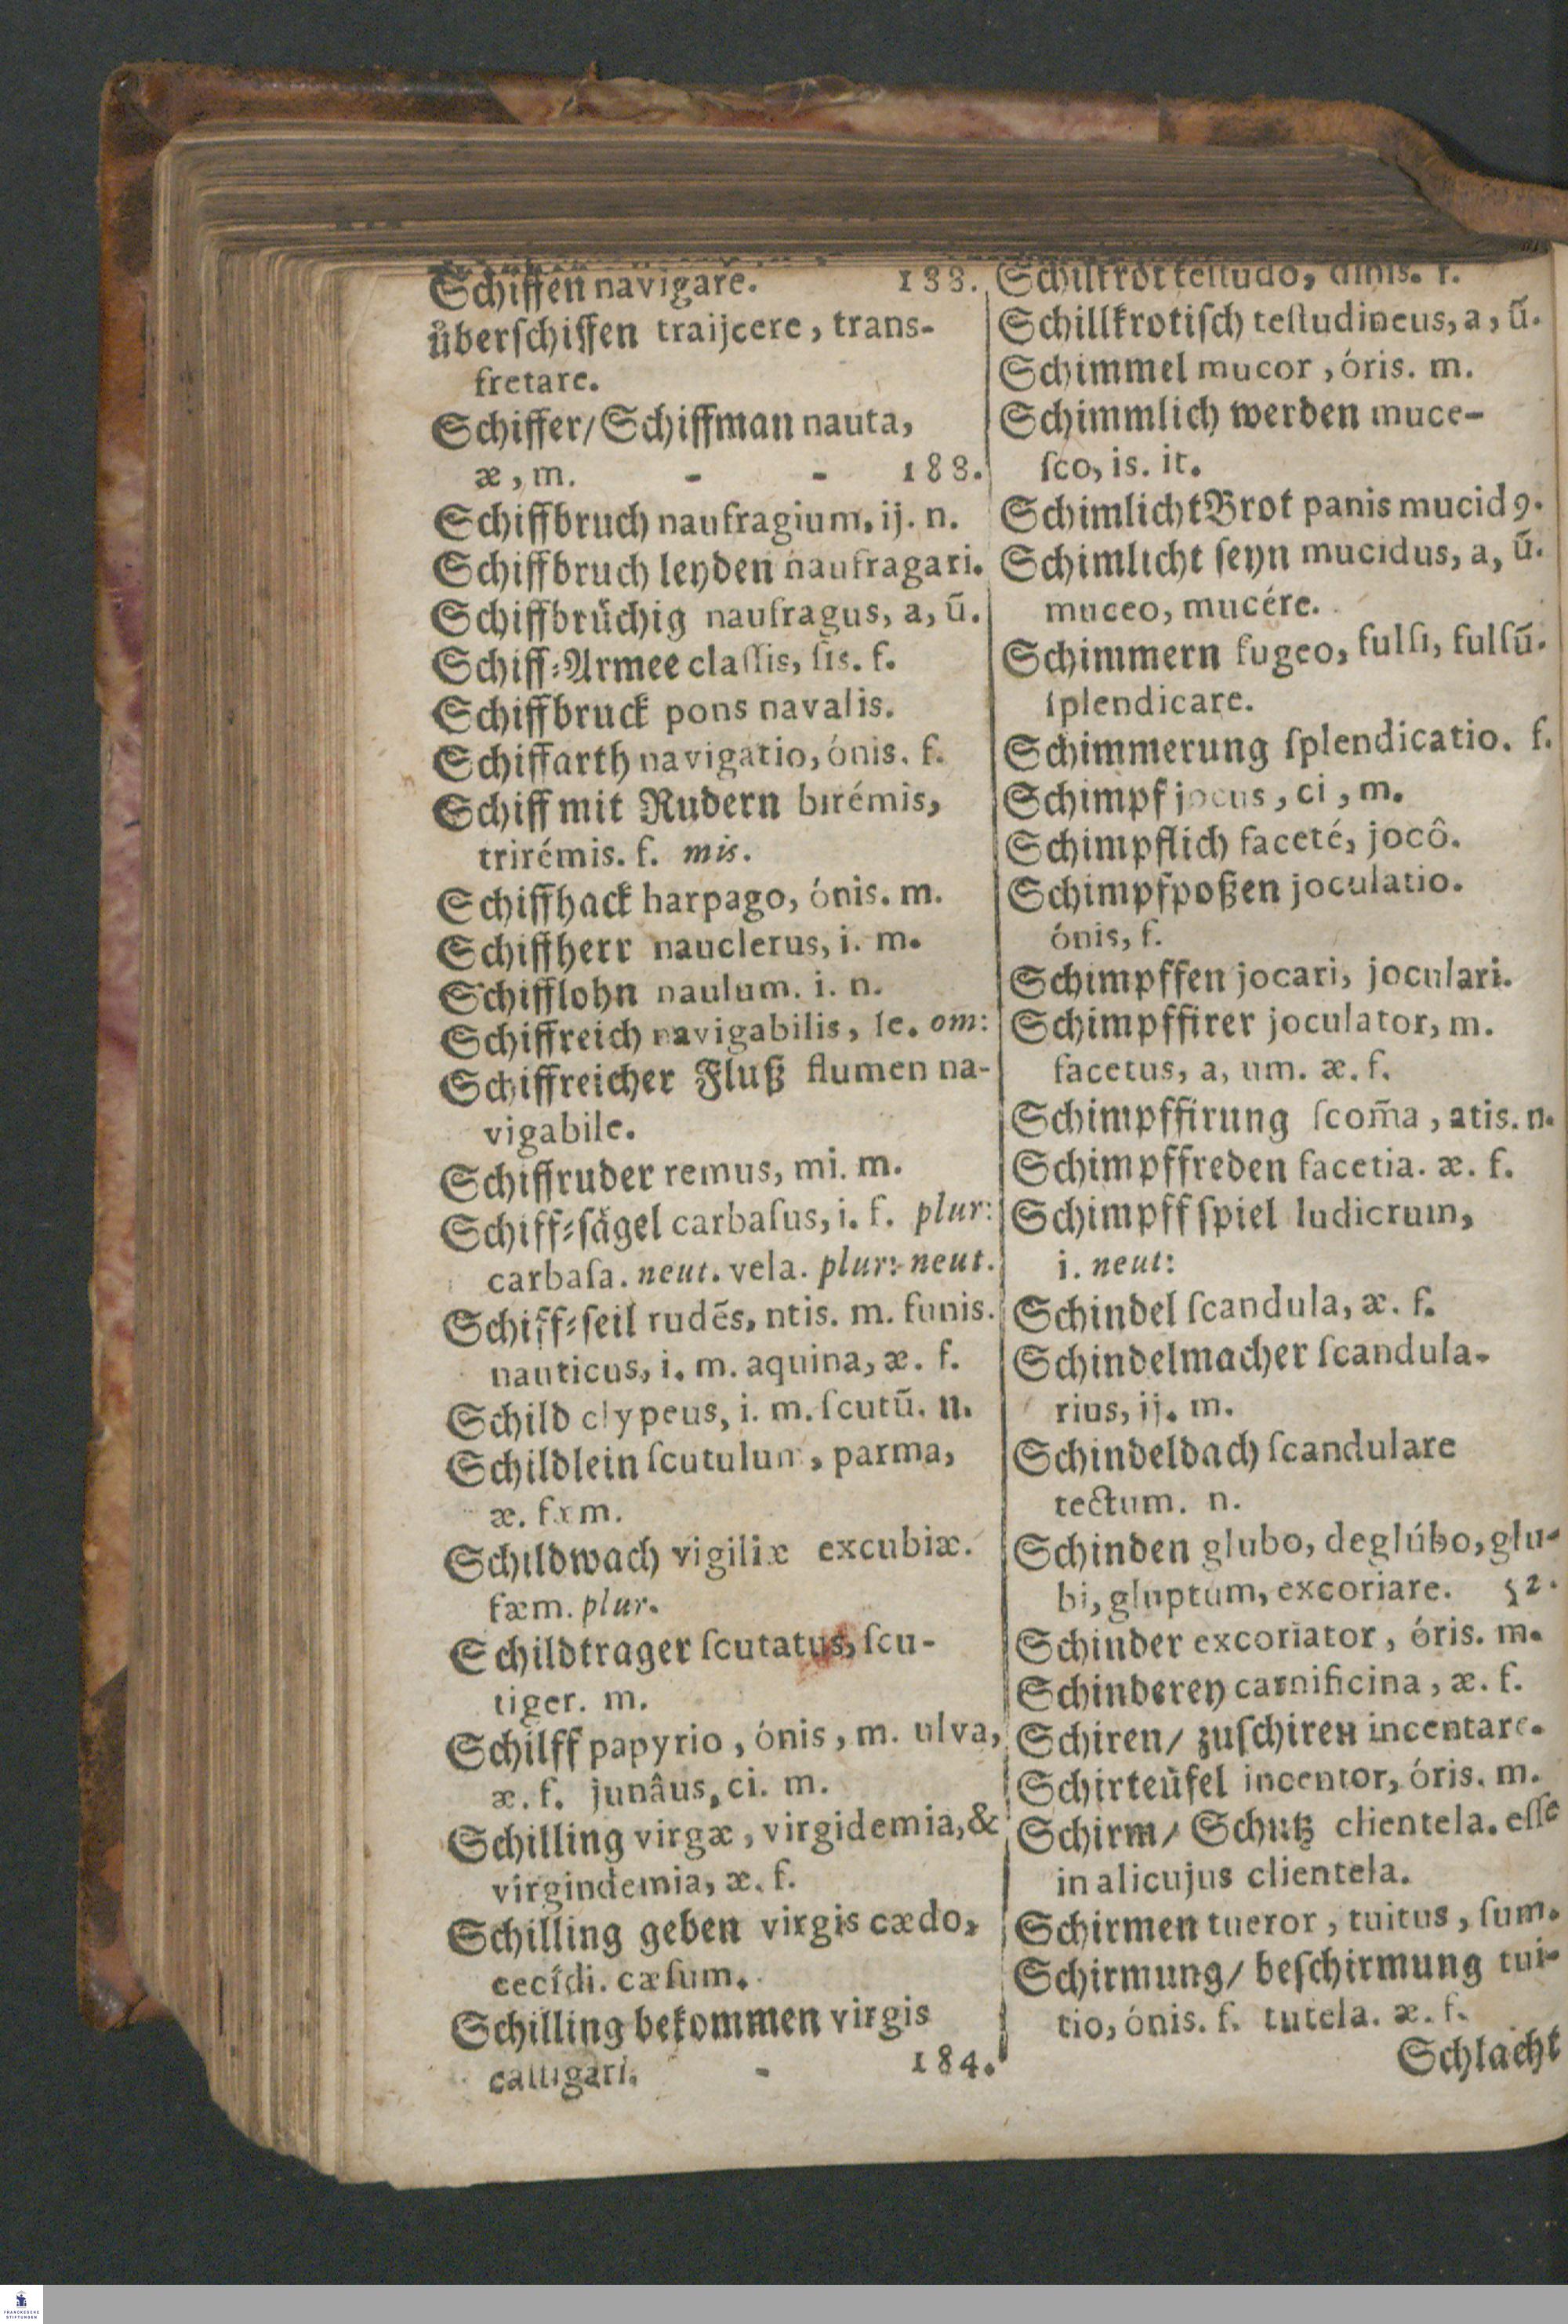 Schiffen navigare. 188.
uͤberſchiffen traijcere, trans-
fretare.
Schiffer/Schiffman nauta,
æ, m. - - 188.
Schiffbruch naufragium, ij. n.
Schiffbruch leyden naufragari.
Schiffbruͤchig naufragus, a, ũ.
Schiff⸗Armee claſſis, ſis. f.
Schiffbruck pons navalis.
Schiffarth navigatio, ónis. f.
Schiff mit Rudern birémis,
trirémis. f. mis.
Schiffhack harpago, ónis. m.
Schiffherr nauclerus, i. m.
Schifflohn naulum. i. n.
Schiffreich navigabilis, le. om:
Schiffreicher Fluß flumen na-
vigabile.
Schiffruder remus, mi. m.
Schiff⸗ſaͤgel carbaſus, i. f. plur:
carbaſa. neut. vela. plur: neut.
Schiff⸗ſeil rudẽs, ntis. m. funis.
nauticus, i. m. aquina, æ. f.
Schild clypeus, i. m. ſcutũ. n.
Schildlein ſcutulum, parma,
æ. fœm.
Schildwach vigiliæ excubiæ.
fæm. plur.
Schildtrager ſcutatus, ſcu-
tiger. m.
Schilff papyrio, ónis, m. ulva,
æ. f. junâus, ci. m.
Schilling virgæ, virgidemia, &
virgindemia, æ. f.
Schilling geben virgis cædo,
cecîdi. cæſum.
Schilling bekommen virgis
caſtigari. - 184.
Schilkrot teſtudo, dinis. f.
Schillkrotiſch teſtudineus, a, ũ.
Schimmel mucor, óris. m.
Schimmlich werden muce-
ſco, is. it.
Schimlicht Brot panis mucidꝰ.
Schimlicht ſeyn mucidus, a, ũ.
muceo, mucére.
Schimmern fugeo, fulſi, fulſũ.
ſplendicare.
Schimmerung ſplendicatio. f.
Schimpf jocus, ci, m.
Schimpflich faceté, jocô.
Schimpfpoßen joculatio.
ónis, f.
Schimpffen jocari, joculari.
Schimpffirer joculator, m.
facetus, a, um. æ. f.
Schimpffirung ſcom̃a, atis. n.
Schimpffreden facetia. æ. f.
Schimpffſpiel ludicrum,
i. neut:
Schindel ſcandula, æ. f.
Schindelmacher ſcandula-
rius, ij. m.
Schindeldach ſcandulare
tectum. n.
Schinden glubo, deglúbo, glu-
bi, gluptum, excoriare. 52.
Schinder excoriator, óris. m.
Schinderey carnificina, æ. f.
Schiren/ zuſchiren incentare.
Schirteuͤfel incentor, óris. m.
Schirm/ Schutz clientela. eſſe
in alicujus clientela.
Schirmen tueror, tuitus, ſum.
Schirmung/ beſchirmung tui-
tio, ónis. f. tutela. æ. f.
Schlacht
FRANCKESCHE
STIFTUNGEN